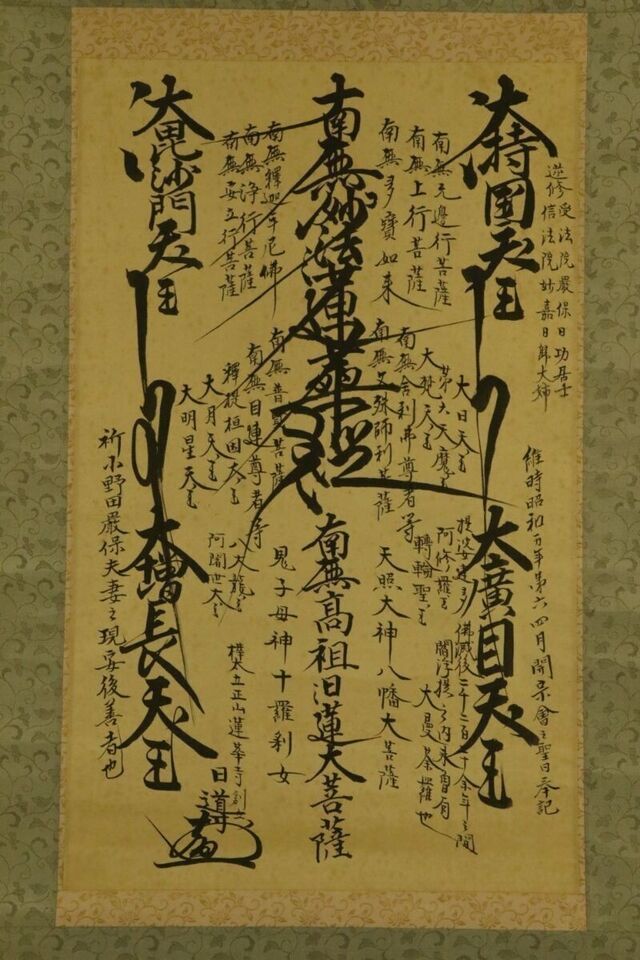 逆修
受法院嚴保日功居士
信法院妙嘉日解大姉
維時昭和五年第六四月開宗會之聖日奉記
大持国天王
大廣目天王
南無无邊行菩薩
南無上行菩薩
南無多寶如来
南無妙法蓮華経
南無釋迦牟尼佛
南無浄行菩薩
南無安立行菩薩
大毘沙門天王
大日天王
第六天魔王
大梵天王
南無舎利弗尊者等
南無文殊師利菩薩
南無普賢菩薩
南無目連尊者等
釋提桓因大王
大月天王
大明星天王
提婆達多
阿修羅王
轉輪聖王
佛滅後二千二百二十余年之間
閻浮提之内未曾有
大曼荼羅也
天照大神八幡大菩薩
南無高祖日蓮大菩薩
鬼子母神十羅刹女
八大龍王
阿闍世大王
大增長天王
樺太立正山蓮華寺創立
日導
祈小野田嚴保夫妻之現安後善者也